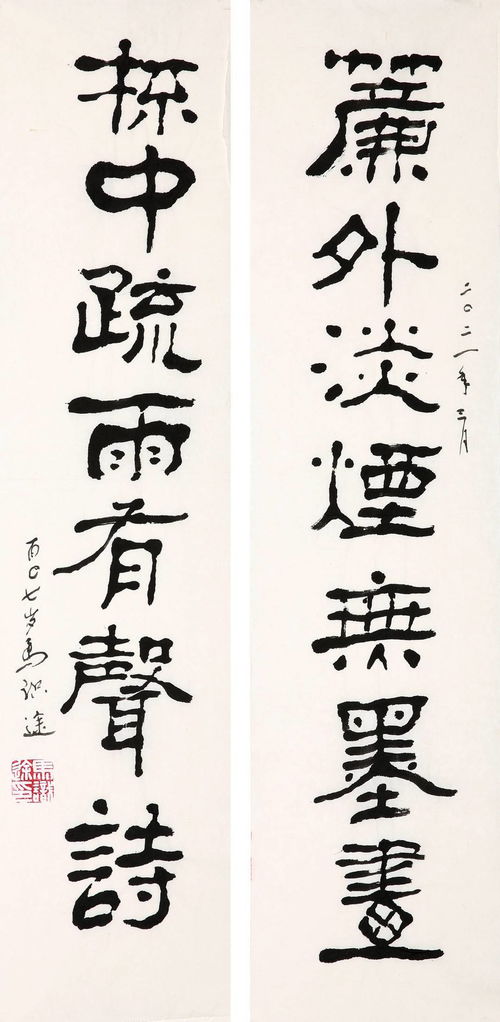 簾外淡煙無墨畫
二〇二一年三月
林中疏雨有聲詩
百〇七岁马识途
馬識途印